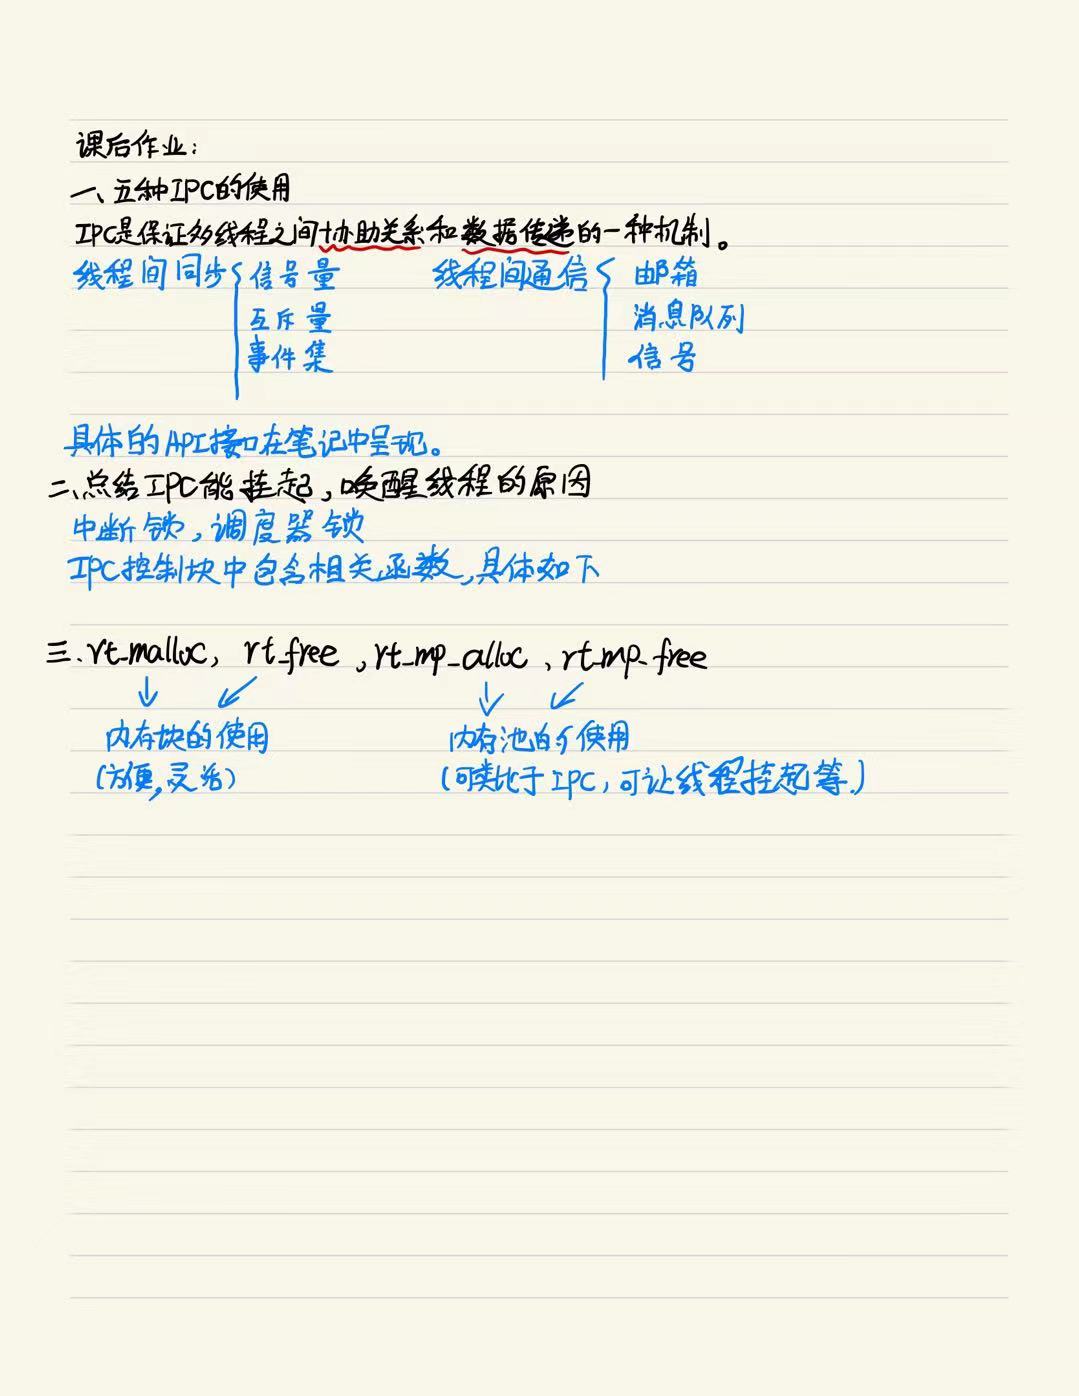 课后作业:
一、五种IPC的使用
IPC是保证多线程之间协助关系和数据传递的一种机制。
线程间同步{ 信号量 线程间通信{ 邮箱
互斥量 消息队列
事件集 信号
具体的API接口在笔记中呈现。
二、总结IPC能挂起,唤醒线程的原因
中断锁,调度器锁
IPC控制块中包含相关函数,具体如下
三.rt_malloc, rt_free,rt_mp_alloc、rt_mp_free
↓ ↙ ↓ ↙
内存块的使用 内存池的使用
(方便,灵活) (可类比于IPC,可让线程挂起等.)